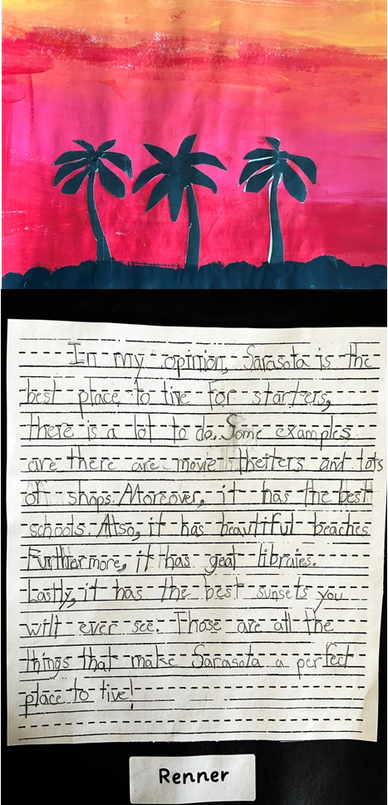 In my opinion, Sarasota is the
best place to live for starters,
there is a lot to do. Some examples
are there are movie theiters and lots
of shops. Moreover, it has the best
schools. Also, it has beautiful beaches
Furthermore, it has geat libraies.
Lastly, it has the best sunsets you
will ever see. Those are all the
things that make Sarasota a perfect
place to live!
Renner